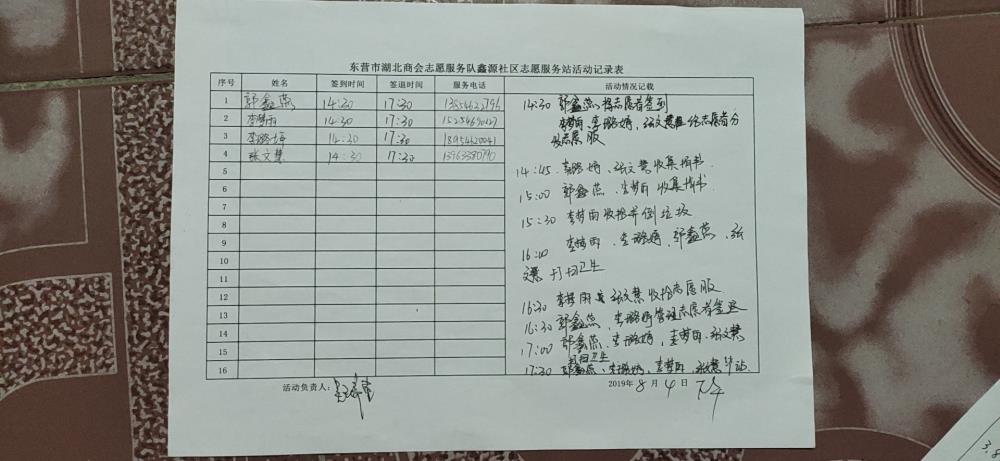 东营市湖北商会志愿服务队鑫源社区志愿服务站活动记录表
序号 姓名 签到时间 签退时间 服务电话 活动情况记载
1 郭鑫燕 14:30 17:30
2 李梦雨 14:30 17:30
3 李璐婷 14:30 17:30 18954620041
4 张文慧 14:30 17:30 13963380790
5
6
7
8
9
10
11
12
13
14
15
16
14:30 郭鑫燕 志愿者签到
李梦雨、李璐婷、张文慧给志愿者分
志愿服
14:45 李璐婷、张文慧收集捐书
15:00 郭鑫燕、李梦雨收集捐书
15:30 李梦雨收拾并倒垃圾
16:00 李梦雨、李璐婷、郭鑫燕、张
文慧 打扫卫生
16:30 李梦雨 张文慧收拾志愿服
16:30 郭鑫燕、李璐婷管理志愿者签退
17:00 郭鑫燕、李璐婷、李梦雨、张文慧
打扫卫生
17:30 郭鑫燕、李璐婷、李梦雨、张文慧
活动负责人:
2019年 8 月 4 日 下午
3.8